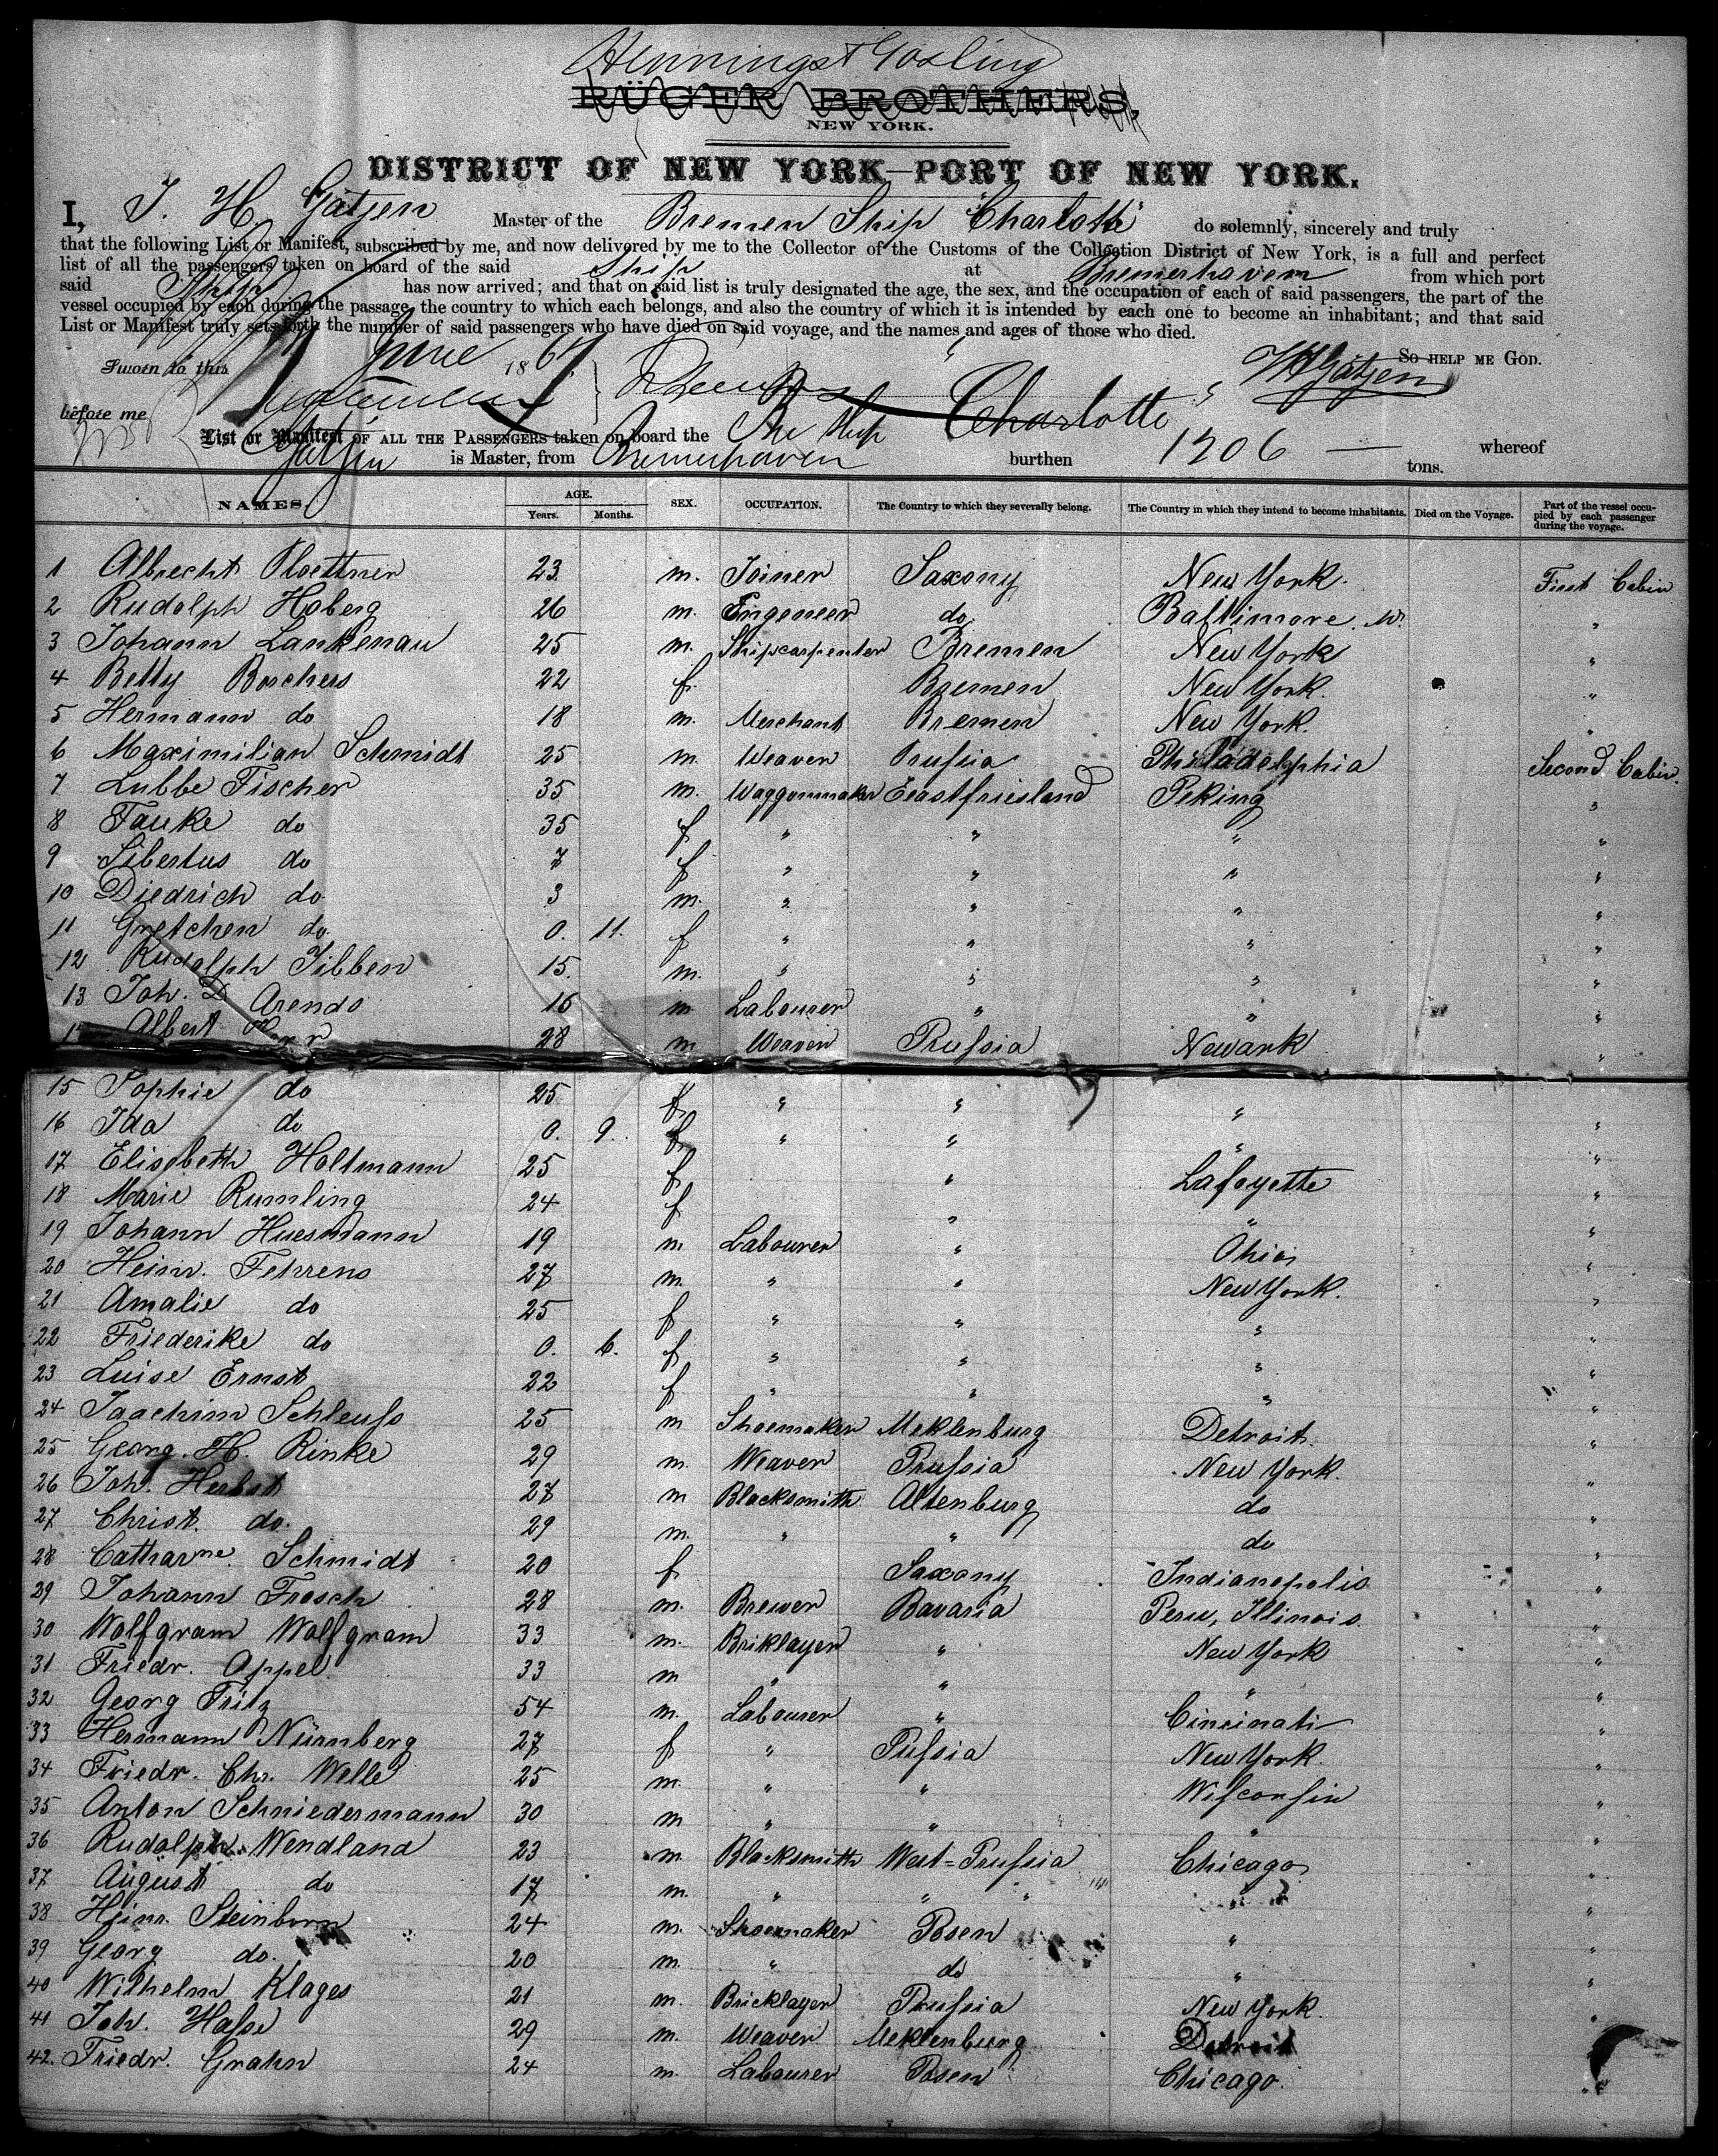 Hennings & Gosling
RÜGER BROTHERS,
NEW YORK.
DISTRICT OF NEW YORK—PORT OF NEW YORK.
I, J. H. Gätjen Master of the Bremen Ship "Charlotte" do solemnly, sincerely and truly
that the following List or Manifest, subscribed by me, and now delivered by me to the Collector of the Customs of the Collection District of New York, is a full and perfect
list of all the passengers taken on board of the said Ship at Bremerhaven from which port
said Ship has now arrived; and that on said list is truly designated the age, the sex, and the occupation of each of said passengers, the part of the
vessel occupied by each during the passage, the country to which each belongs, and also the country of which it is intended by each one to become an inhabitant; and that said
List or Manifest truly sets forth the number of said passengers who have died on said voyage, and the names and ages of those who died.
So help me God.
Sworn to this June 1867 JHGätjen
before me
List or Manifest of all the Passengers taken on board the Bre Ship Charlotte whereof
Gätjen is Master, from Bremerhaven burthen 1206 — tons.
NAMES. AGE. Years. Months. SEX. OCCUPATION. The Country to which they severally belong. The Country in which they intend to become inhabitants. Died on the Voyage. Part of the vessel occupied by each passenger during the voyage.
1 Albrecht Ploettner 23 m. Joiner Saxony New York. First Cabin
2 Rudolph Hoberg 26 m. Engeneer do Baltimore. "
3 Johann Lankenau 25 m. Shipscarpenter Bremen New York "
4 Betty Borchers 22 f. Bremen New York. "
5 Hermann do 18 m. Merchant Bremen New York. "
6 Maximilian Schmidt 25 m. Weaver Prussia Philadelphia Second Cabin.
7 Lubbe Fischer 35 m. Waggonmaker Eeastfriesland Peking "
8 Fauke do 35 f " " " "
9 Sibertus do 7 f " " " "
10 Diedrich do 3 m. " " " "
11 Gretchen do. 0. 11. f " " " "
12 Rudolph Tibben 15. m. " " " "
13 Joh. D Arends 16 m Labourer " " "
14 Albert 28 m Weaver Prussia Newark "
15 Sophie do 25 f " " " "
16 Ida do 0. 9. f " " " "
17 Elisabeth Holtmann 25 f " Lafayette "
18 Marie Rumling 24 f " " "
19 Johann Huesmann 19 m. Labourer " Ohio "
20 Heinr. Fehrens 27 m. " " New York. "
21 Amalie do 25 f " " " "
22 Friederike do 0. 6. f " " " "
23 Luise Ernst 22 f " " " "
24 Joachim Schleuss 25 m Shoemaker Meklenburg Detroit. "
25 Georg. H. Rinke 29 m. Weaver Prussia New York. "
26 Joh. Herbst 27 m Blacksmith Altenburg do "
27 Christ. do. 29 m. " " do "
28 Catharne Schmidt 20 f Saxony Indianopolis "
29 Johann Frosch 28 m. Brewer Bavaria Peru, Illinois "
30 Wolfgram Wolfgram 33 m. Briklayer " New York "
31 Friedr. Appel 33 m " " " "
32 Georg Fritz 54 m. Labourer " Cincinati "
33 Hermann Nürnberg 27 f " Pussia New York "
34 Friedr. Chr. Welle 25 m. " " Wisconsin "
35 Anton Schniedermann 30 m " " " "
36 Rudolph Wendland 23 m Blacksmith West=Prussia Chicago "
37 August do 17 m. " " " " "
38 Heinr. Steinborn 24 m. Shoemaker Posen " "
39 Georg do. 20 m. " do " "
40 Wilhelm Klages 21 m. Bricklayer Prussia New York. "
41 Joh. Hasse 29 m. Weaver Meklenburg Detroit
42. Friedr. Grahn 24 m. Labourer Posen Chicago. "